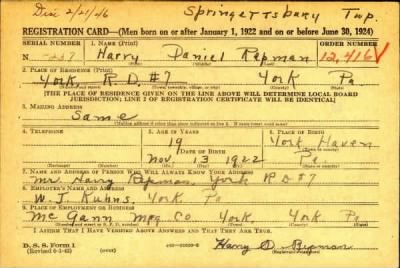 Dis 2/21/46 Springettsbury Twp.
REGISTRATION CARD—(Men born on or after January 1, 1922 and on or before June 30, 1924)
SERIAL NUMBER 1. NAME (Print) ORDER NUMBER
N-237 Harry Daniel Repman 12,416
(First) (Middle) (Last)
2. PLACE OF RESIDENCE (Print)
York R.D. #7 York Pa
[THE PLACE OF RESIDENCE GIVEN ON THE LINE ABOVE WILL DETERMINE LOCAL BOARD JURISDICTION; LINE 2 OF REGISTRATION CERTIFICATE WILL BE IDENTICAL]
3. MAILING ADDRESS
Same
4. TELEPHONE 5. AGE IN YEARS 6. PLACE OF BIRTH
19 York Haven
DATE OF BIRTH
Nov. 13 1922 Pa.
7. NAME AND ADDRESS OF PERSON WHO WILL ALWAYS KNOW YOUR ADDRESS
Mr Harry Repman York RD #7
8. EMPLOYER'S NAME AND ADDRESS
W. J. Kuhns, York Pa
9. PLACE OF EMPLOYMENT OR BUSINESS
McGann Mfg. Co York. York Pa
I AFFIRM THAT I HAVE VERIFIED ABOVE ANSWERS AND THAT THEY ARE TRUE.
D. S. S. Form 1 Harry D. Repman